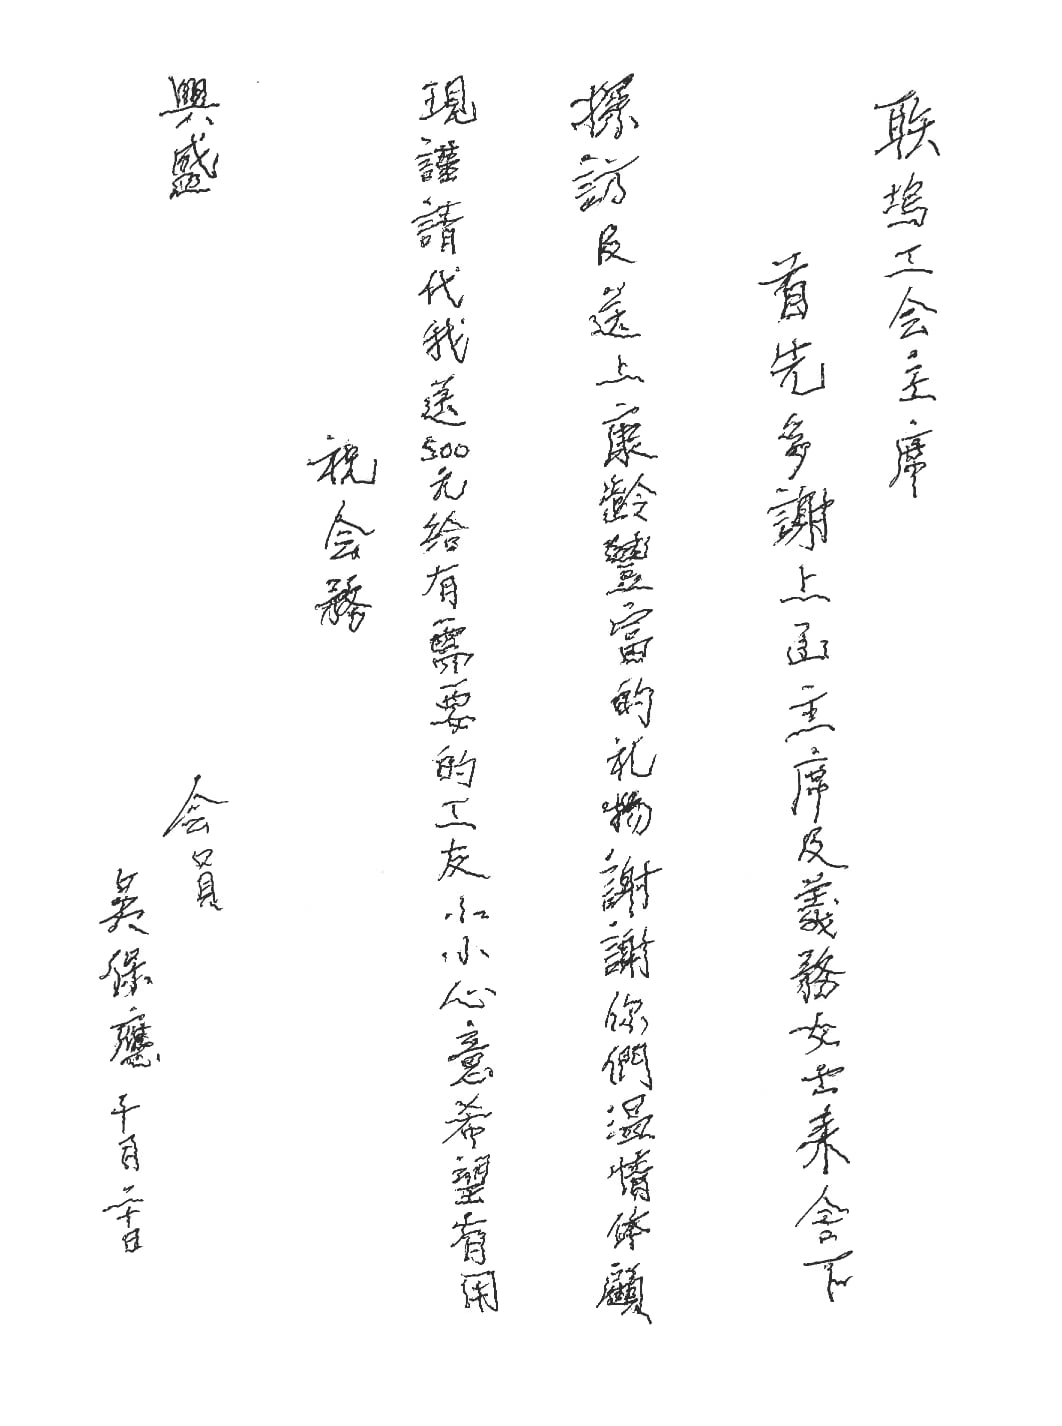 联塢工会主席
首先多謝上函主席及義務女士來舍下
探訪及送上康齡豐富的礼物謝謝你們温情体顧
現謹請代我送500元給有需要的工友小小心意希望有用
祝会務
興盛
会員
吳保應 十月二十日